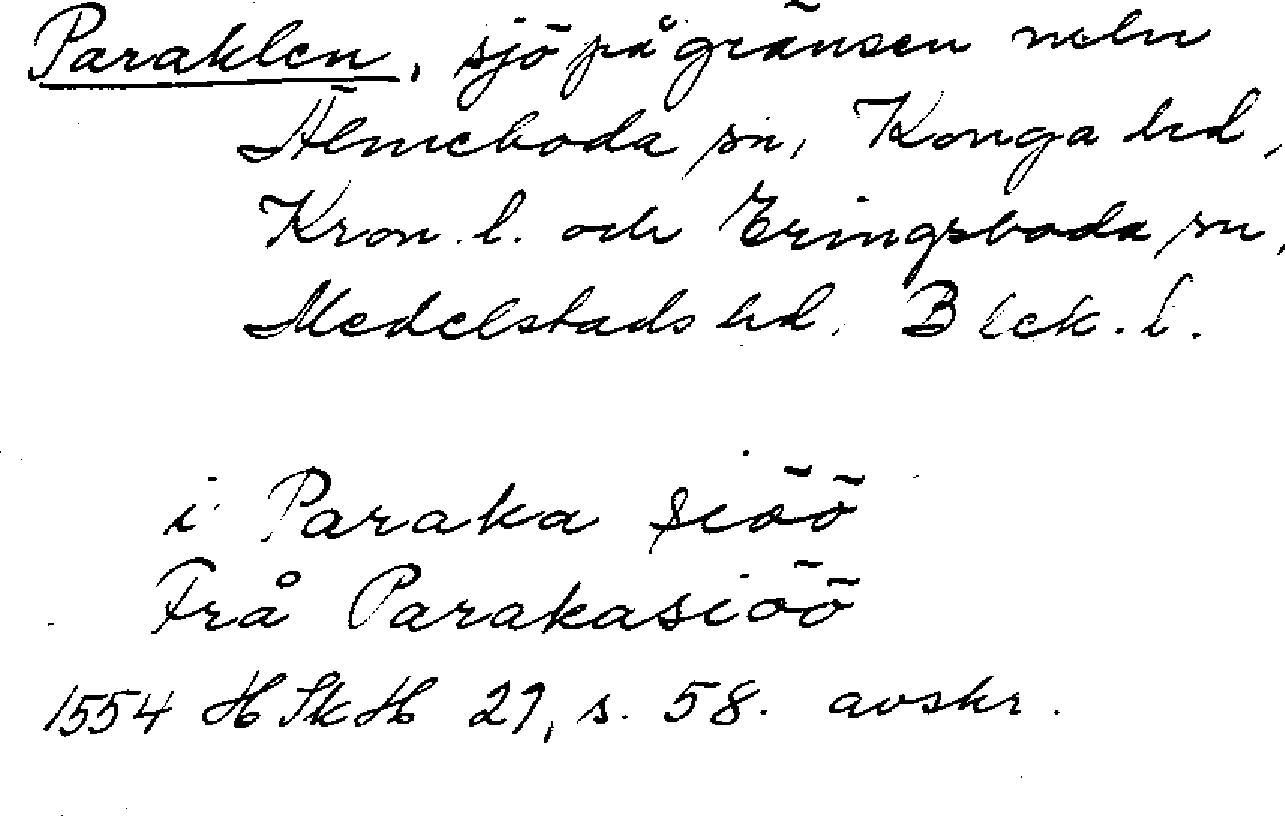 Paraklen, sjö på gränsen meln
Älmeboda sn, Konga hd,
Kron. l. och Eringsboda sn,
Medelstads hd. Blek. l.
i Paraka siöö
Frå Parakasiöö
1554 HSkH 29, s. 58. avskr.